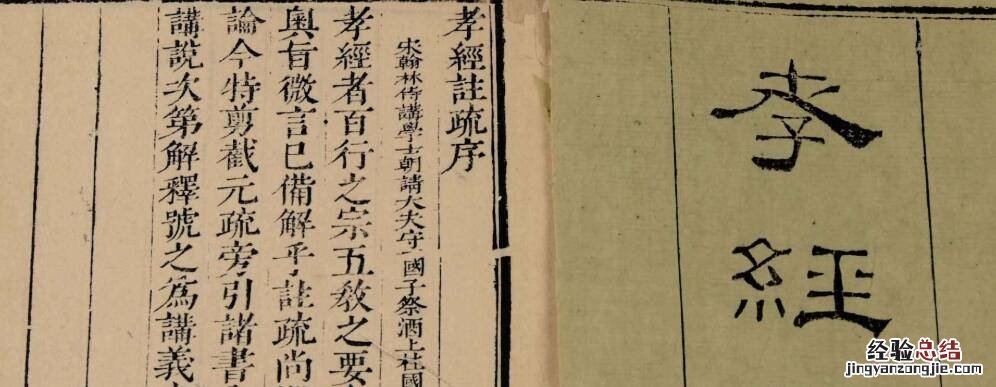 孝經
孝經註疏序
宋翰林侍講學士朝請大夫守國子祭酒上柱國
孝經者百行之宗五敎之要
奧旨微言已備解乎註疏尚
論今特剪截元疏旁引諸書
講說次第解釋號之爲講義
经验总结
jingyanzongjie.com